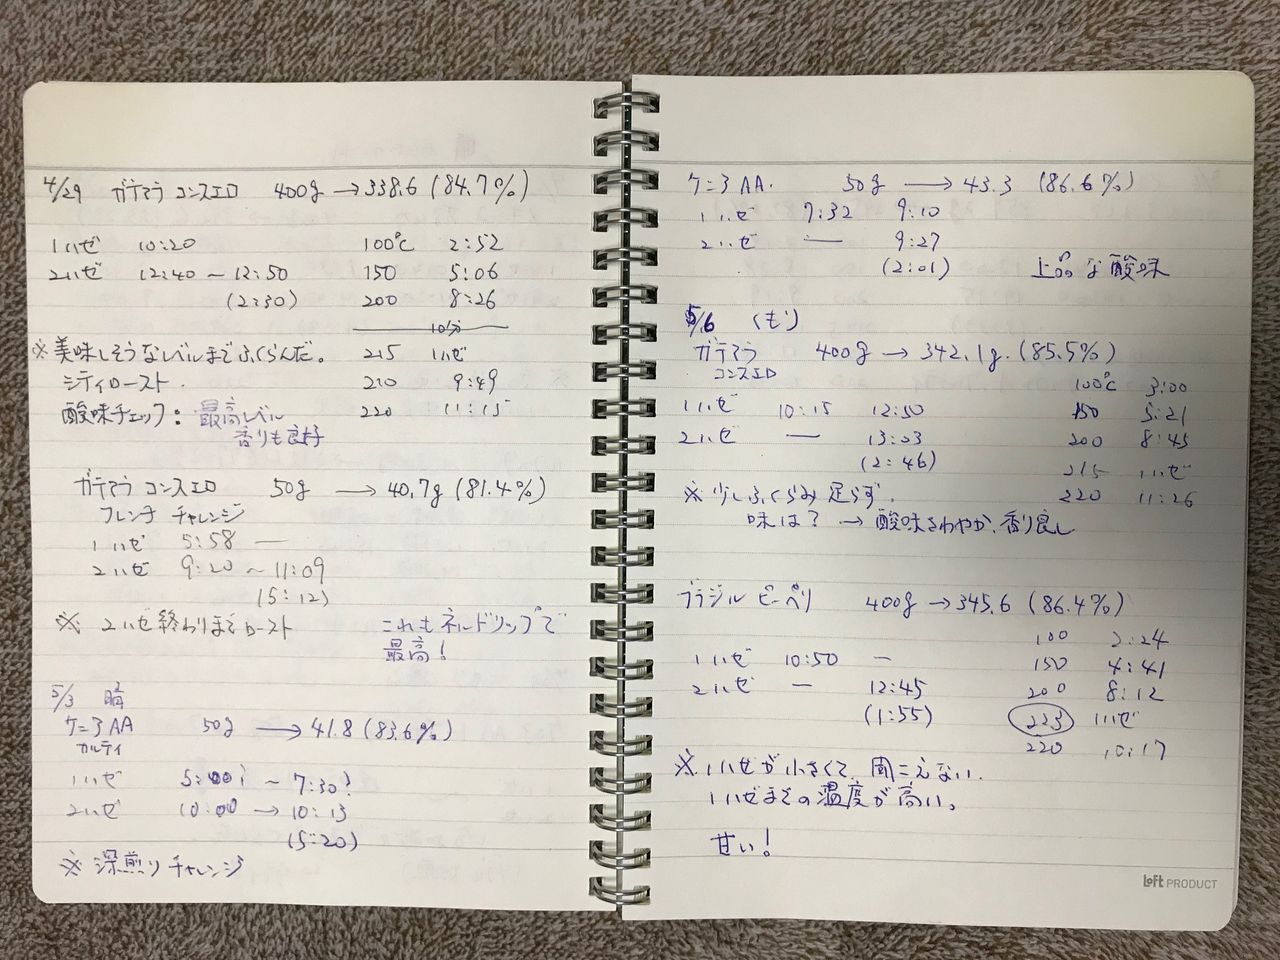 4/29 ガテマラ コンスエロ 400g → 338.6 (84.7%)
1ハゼ 10:20 100℃ 2:52
2ハゼ 12:40 ～ 12:50 150 5:06
(2:30) 200 8:26
10分
※美味しそうなレベルまでふくらんだ。 215 1ハゼ
シティロースト. 210 9:49
酸味チェック: 最高レベル 220 11:15
香りも良好
ガテマラ コンスエロ 50g → 40.7g (81.4%)
フレンチ チャレンジ
1ハゼ 5:58 ―
2ハゼ 9:20 ～ 11:09
(5:12)
※ 2ハゼ終わりまでロースト これもネルドリップで
最高!
5/3 晴
ケニアAA 50g → 41.8 (83.6%)
カルディ
1ハゼ 5:00? ～ 7:30?
2ハゼ 10:00 → 10:13
(5:20)
※ 深煎りチャレンジ
ケニアAA. 50g → 43.3 (86.6%)
1ハゼ 7:32 9:10
2ハゼ ― 9:27
(2:01) 上品な酸味
5/6 (くもり)
ガテマラ 400g → 342.1g. (85.5%)
コンスエロ 100℃ 3:00
1ハゼ 10:15 12:50 150 5:21
2ハゼ ― 13:03 200 8:45
(2:46) 215 1ハゼ
※ 少しふくらみ足らず. 220 11:26
味は? → 酸味さわやか、香り良し
ブラジル ピーベリ 400g → 345.6 (86.4%)
100 2:24
1ハゼ 10:50 ― 150 4:41
2ハゼ ― 12:45 200 8:12
(1:55) 223 1ハゼ
220 10:17
※ 1ハゼが小さくて、聞こえない.
1ハゼまでの温度が高い。
甘い!
Loft PRODUCT